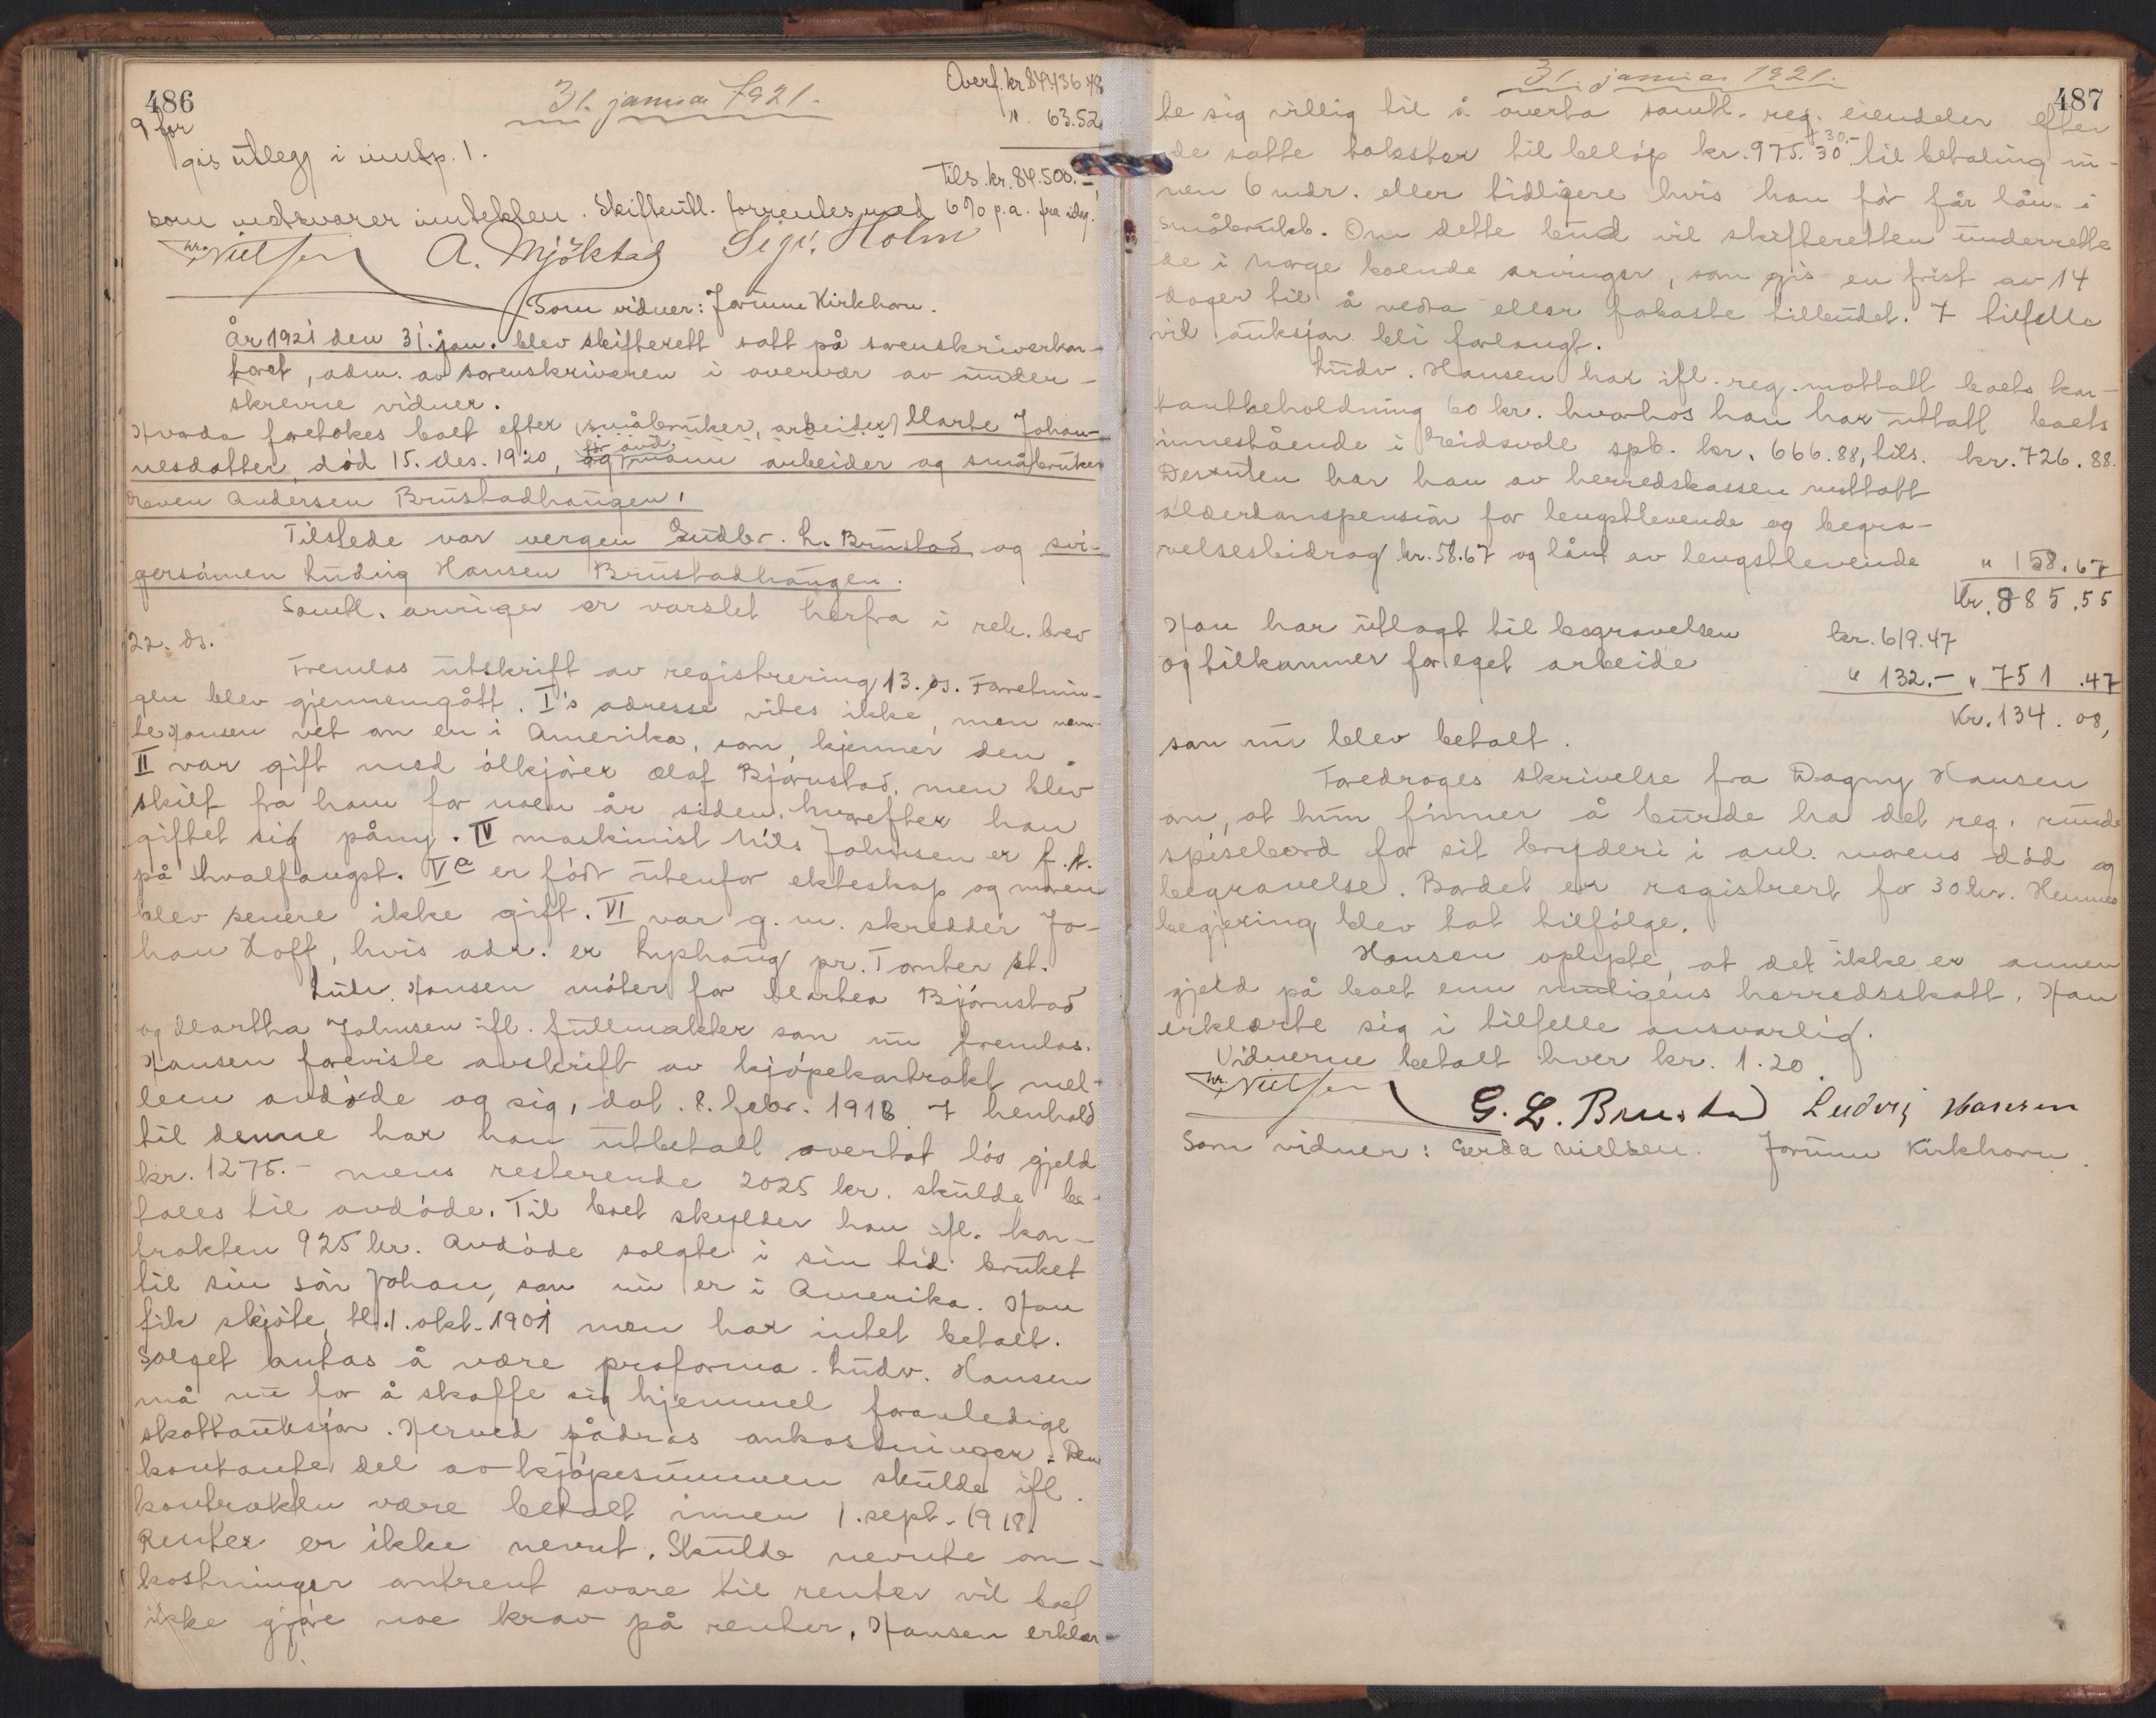 486
31. januar 1921.
Overf. kr. 84436.48
9 for
" 63.52
gis utlegg i innsp. 1.
Tils. kr. 84.500.-,
som motsvarer inntekten. Skifteutl. forrentes med 6% p.a. fra idag.
Nielsen A. Mjøkstad Sigv. Holm
Som vidner: Jorunn Kirkhorn.
År 1921 den 31. jan. blev skifterett satt på sorenskriverkon-
toret, adm. av sorenskriveren i overvær av under-
skrevne vidner.
Hvorda foretokes boet efter (småbruker, arbeider) Marte Johan-
nesdatter, død 15. des. 1920, og mann arbeider og småbruker
Even Andersen Brustadhaugen.
Tilstede var vergen Gudbr. L. Brustad og svi-
gersønnen Ludvig Hansen Brustadhaugen.
Samtl. arvinger er varslet herfra i rek. brev
22. ds.
Fremlas utskrift av registrering 13. ds. Forretnin-
gen blev gjennemgått. I's adresse vites ikke, men nevn-
te Hansen vet om en i Amerika, som kjenner den.
II var gift med ølkjører Olaf Bjørnstad, men blev
skilt fra ham for noen år siden, hvorefter han
giftet sig påny. IV maskinist Nils Johnsen er f.t.
på hvalfangst. Va er født utenfor ekteskap og moren
blev senere ikke gift. VI var g. m. skredder Jo-
han Hoff, hvis adr. er Lyphaug pr. Tomter st.
Ludv. Hansen møter for Martea Bjørnstad
og Martha Johnsen ifl. fullmakter som nu fremlas.
Hansen foreviste avskrift av kjøpekontrakt mel-
lem avdøde og sig, dat. 8. febr. 1918. I henhold
til denne har han utbetalt overtat løs gjeld
kr. 1275.- mens resterende 2025 kr. skulde be-
tales til avdøde. Til boet skylder han ifl. kon-
trakten 925 kr. Avdøde solgte i sin tid bruket
til sin søn Johan, som nu er i Amerika. Han
fik skjøte, tl. 1. okt. 1901 men har intet betalt.
Salget antas å være proforma. Ludv. Hansen
må nu for å skaffe sig hjemmel foranledige
skattauksjon. Herved pådras omkostninger. Den
kontante del av kjøpesummen skulde ifl.
kontrakten være betalt innen 1. sept. 1918.
Renter er ikke nevnt. Skulde nevnte om-
kostninger omtrent svare til renter vil boet
ikke gjøre noe krav på renter. Hansen erklær-
31. januar 1921.
487
te sig villig til å overta samtl. reg. eiendeler efter
de satte takster til beløp kr. 975.30 til betaling in-
nen 6 mdr. eller tidligere hvis han før får lån i
Småbrukb. Om dette bud vil skifteretten underrette
de i Norge boende arvinger, som gis en frist av 14
dager til å vedta eller forkaste tilbudet. I tilfelle
vil auksjon bli forlangt.
Ludv. Hansen har ifl. reg. mottatt boets kon-
tantbeholdning 60 kr. hvorhos han har uttatt boets
innestående i Eidsvold spb. kr. 666.88, tils. kr. 726.88.
Desuten har han av herredskassen mottatt
alderdomspension for lengstlevende og begra-
velsesbidrag kr. 58.67 og lånt av lengstlevende " 158.67
Kr. 885.55
Han har utlagt til begravelsen kr. 619.47
og tilkommer for eget arbeide " 132.- " 751.47
Kr. 134.08,
som nu blev betalt.
Foredroges skrivelse fra Dagny Hansen
om, at hun finner å burde ha det reg. runde
spisebord for sit bryderi i anl. morens død og
begravelse. Bordet er registrert for 30 kr. Hennes
begjering blev tat tilfølge.
Hansen oplyste, at det ikke er annen
gjeld på boet enn muligens herredsskatt. Han
erklærte sig i tilfelle ansvarlig.
Vidnerne betalt hver kr. 1.20.
Nielsen G. L. Brustad Ludvig Hansen
Som vidner: Gerda Nielsen. Jorunn Kirkhorn.